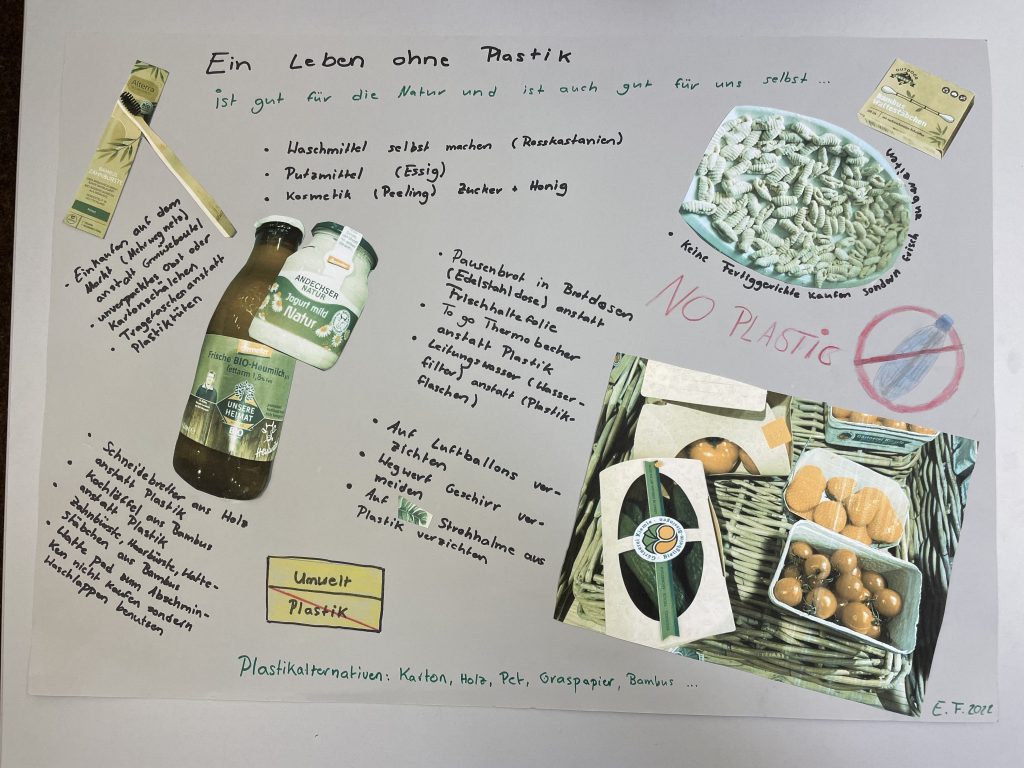 Ein Leben ohne Plastik
ist gut für die Natur und ist auch gut für uns selbst ...
• Waschmittel selbst machen (Rosskastanien)
• Putzmittel (Essig)
• Kosmetik (Peeling) Zucker + Honig
Alterra
BAMBUS
ZAHNBÜRSTE
• Einkaufen auf dem
Markt (Mehrwegnetz)
anstatt Gemüsebeutel
• unverpacktes Obst oder
Kartonschälchen
• Tragetaschen anstatt
Plastiktüten
demeter
ANDECHSER
NATUR
Jogurt mild
Natur
demeter
Frische BIO-Heumilch
fettarm 1,8% Fett
UNSERE
HEIMAT
BIO
• Pausenbrot in Brotdosen
(Edelstahldose) anstatt
Frischhaltefolie
• To go Thermobecher
anstatt Plastik
• Leitungswasser (Wasser-
filter) anstatt (Plastik-
flaschen)
• Auf Luftballons ver-
zichten
• Wegwerf Geschirr ver-
meiden
• Auf Strohhalme aus
Plastik verzichten
OUTDOOR
Bambus
Wattestäbchen
• Keine Fertiggerichte kaufen sondern frisch
zubereiten
NO PLASTIC
• Schneidebretter aus Holz
anstatt Plastik
• Kochlöffel aus Bambus
anstatt Plastik
• Zahnbürste, Haarbürste, Watte-
stäbchen aus Bambus
• Watte Pad zum Abschmin-
ken nicht kaufen sondern
Waschlappen benutzen
Umwelt
Plastik
Plastikalternativen: Karton, Holz, Pet, Graspapier, Bambus ...
E. F. 2022